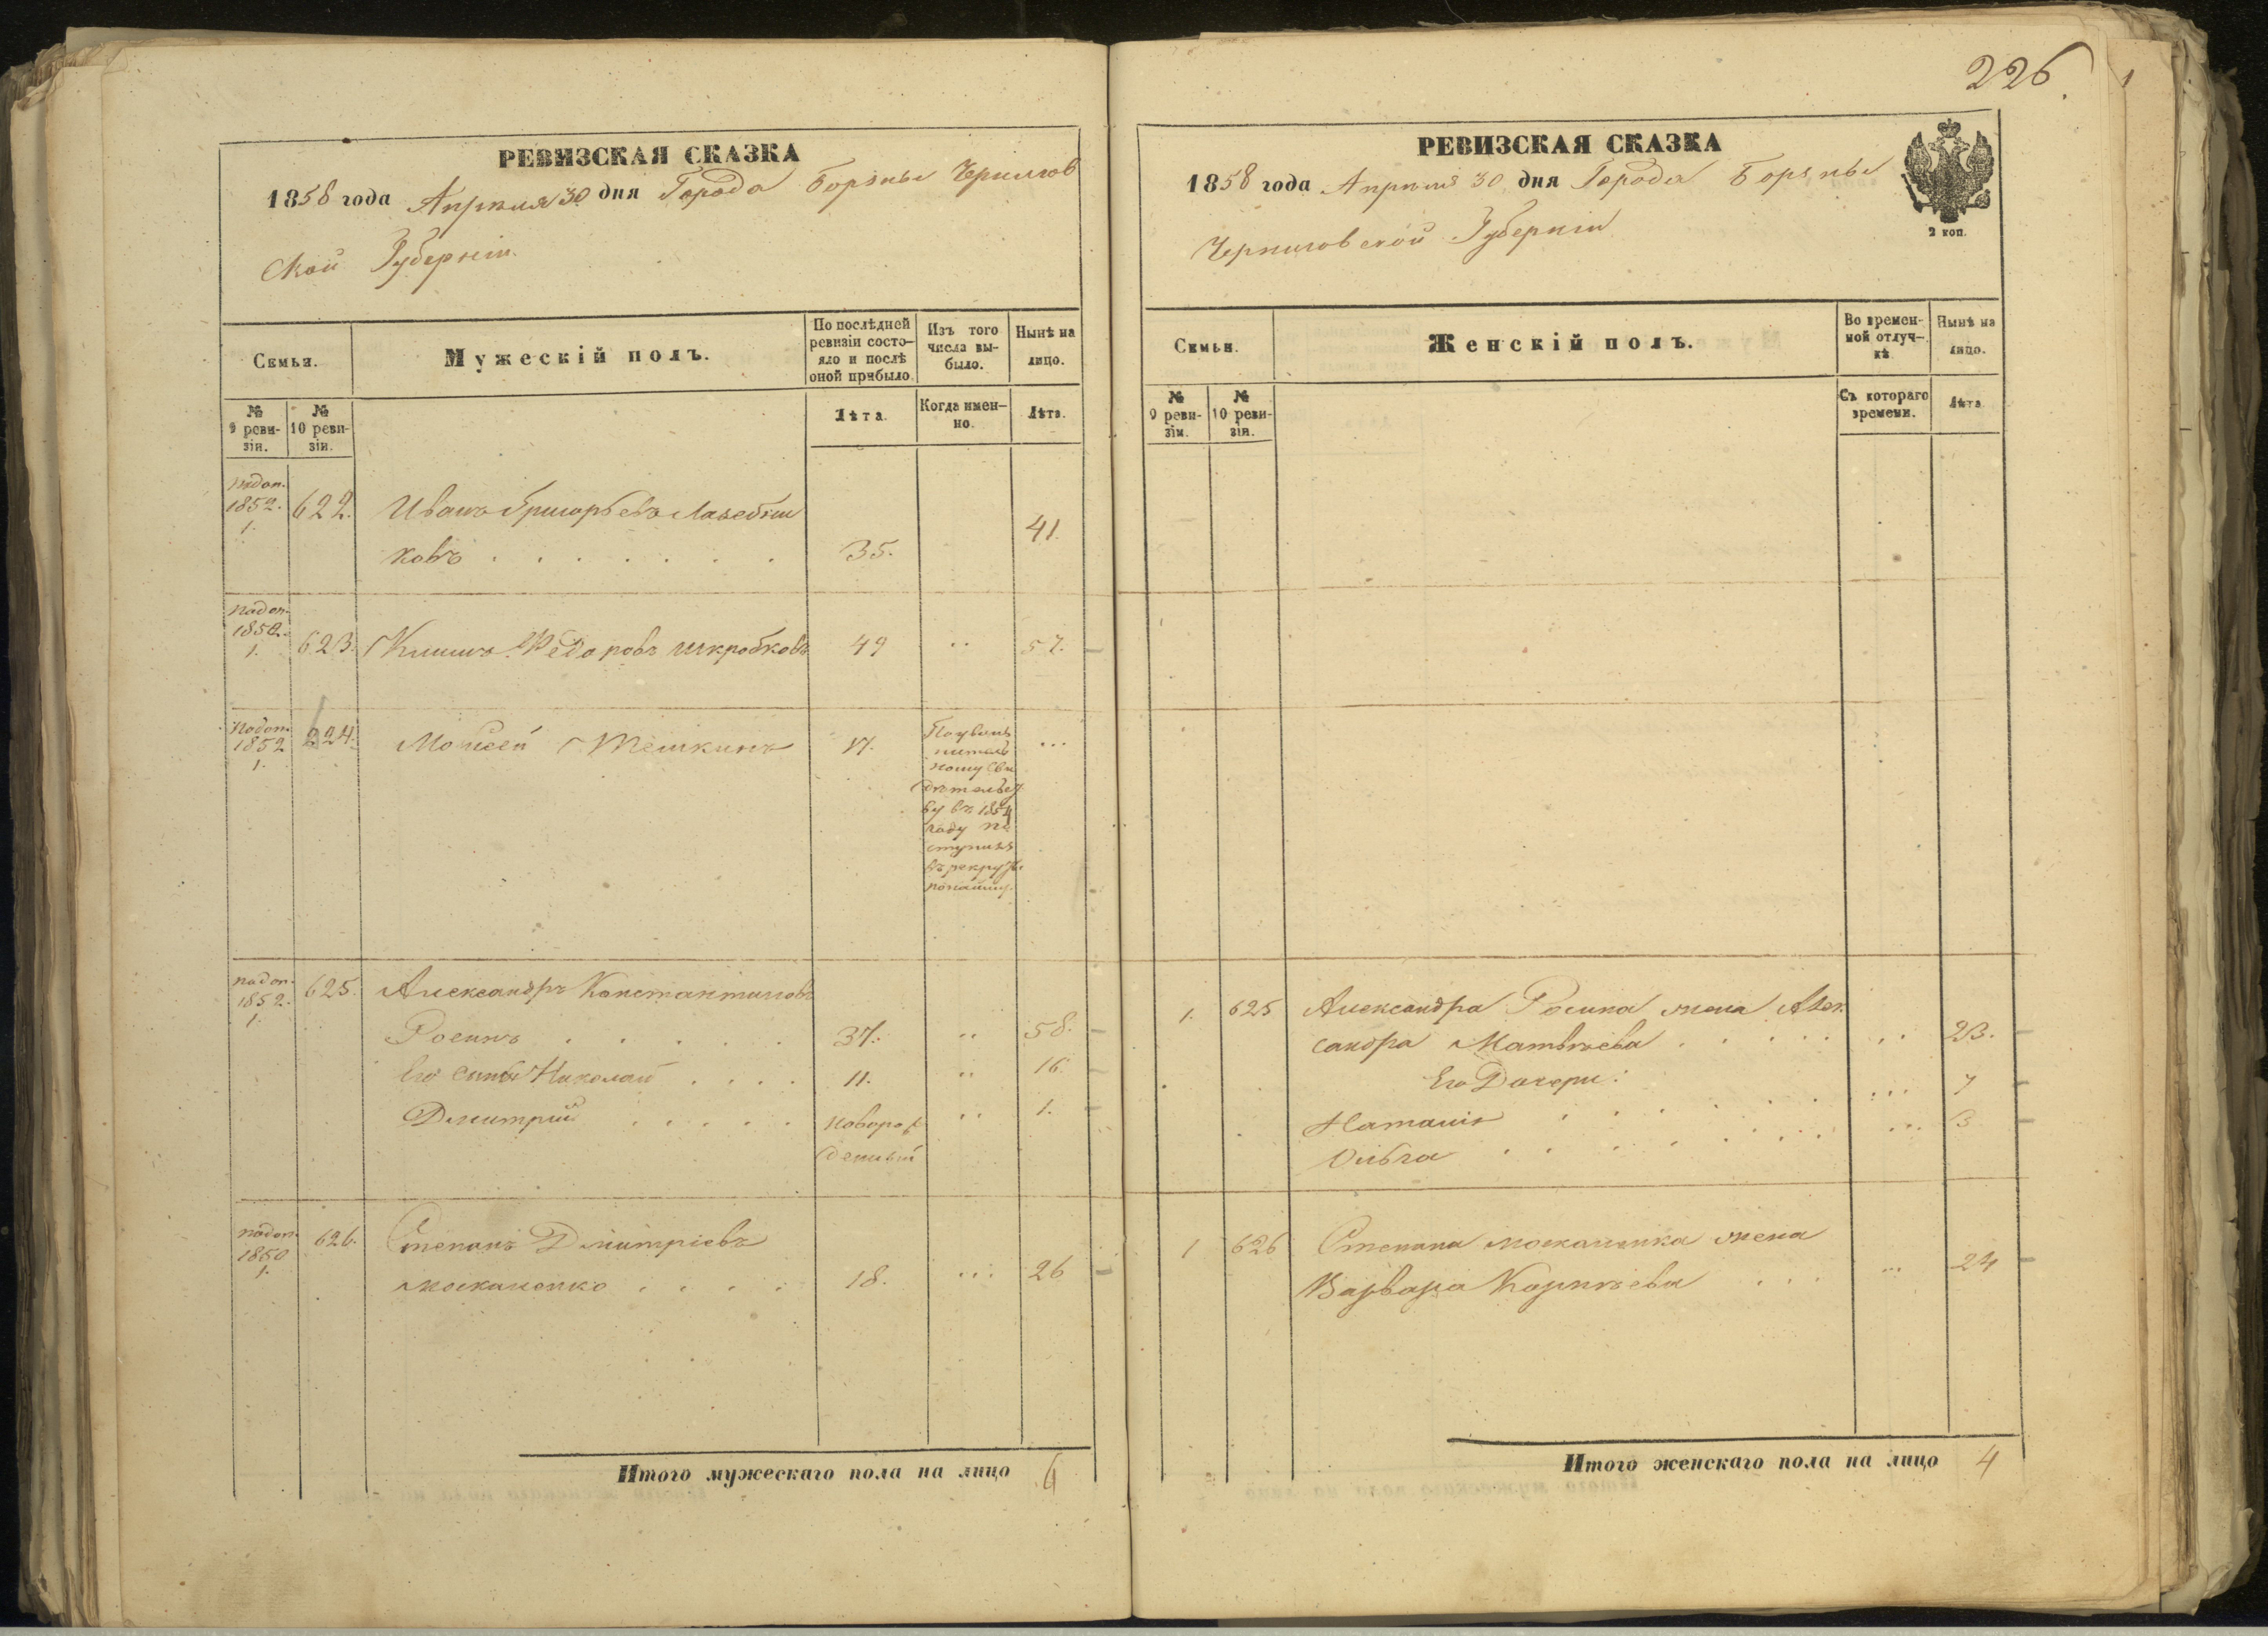 226
РЕВИЗСКАЯ СКАЗКА
1858 года Апрѣля 30 дня Города Борзны Чернигов
ской Губерніи.
Семьи.
Мужескій полъ.
По послѣдней
ревизіи состо-
яло и послѣ
оной прибыло.
Изъ того
числа вы-
было.
Нынѣ на
лицо.
№
9 реви-
зіи.
№
10 реви-
зіи.
Лѣта.
Когда имен-
но.
Лѣта.
1852.
1.
622.
Иванъ Григорьевъ
ковъ
35.
41.
1850.
1.
623.
Федоровъ
49
57.
1852
1.
624.
Моисей
17.
ву въ 1854
году по
ступилъ
1852.
1.
625.
Александръ Константиновъ
Росинъ
37.
58.
Его сыны Николай
11.
16.
Дмитрій
новорож
денный
1.
1850
1.
626.
Степанъ Дмитріевъ
Москаленко
18.
26
Итого мужескаго пола на лицо 6
РЕВИЗСКАЯ СКАЗКА
1858 года Апрѣля 30 дня Города Борзны
Черниговской Губерніи
2 коп.
Семьи.
Женскій полъ.
Во времен-
ной отлуч-
кѣ.
Нынѣ на
лицо.
№
9 реви-
зіи.
№
10 реви-
зіи.
Съ котораго
времени.
Лѣта.
1.
625
Александра Росина жена Алек
сандра Матвѣева
23.
Его Дочери:
Наталія
7
Ольга
3
1
626
Степана Москаленка жена
Варвара Корнѣева
24
Итого женскаго пола на лицо 4